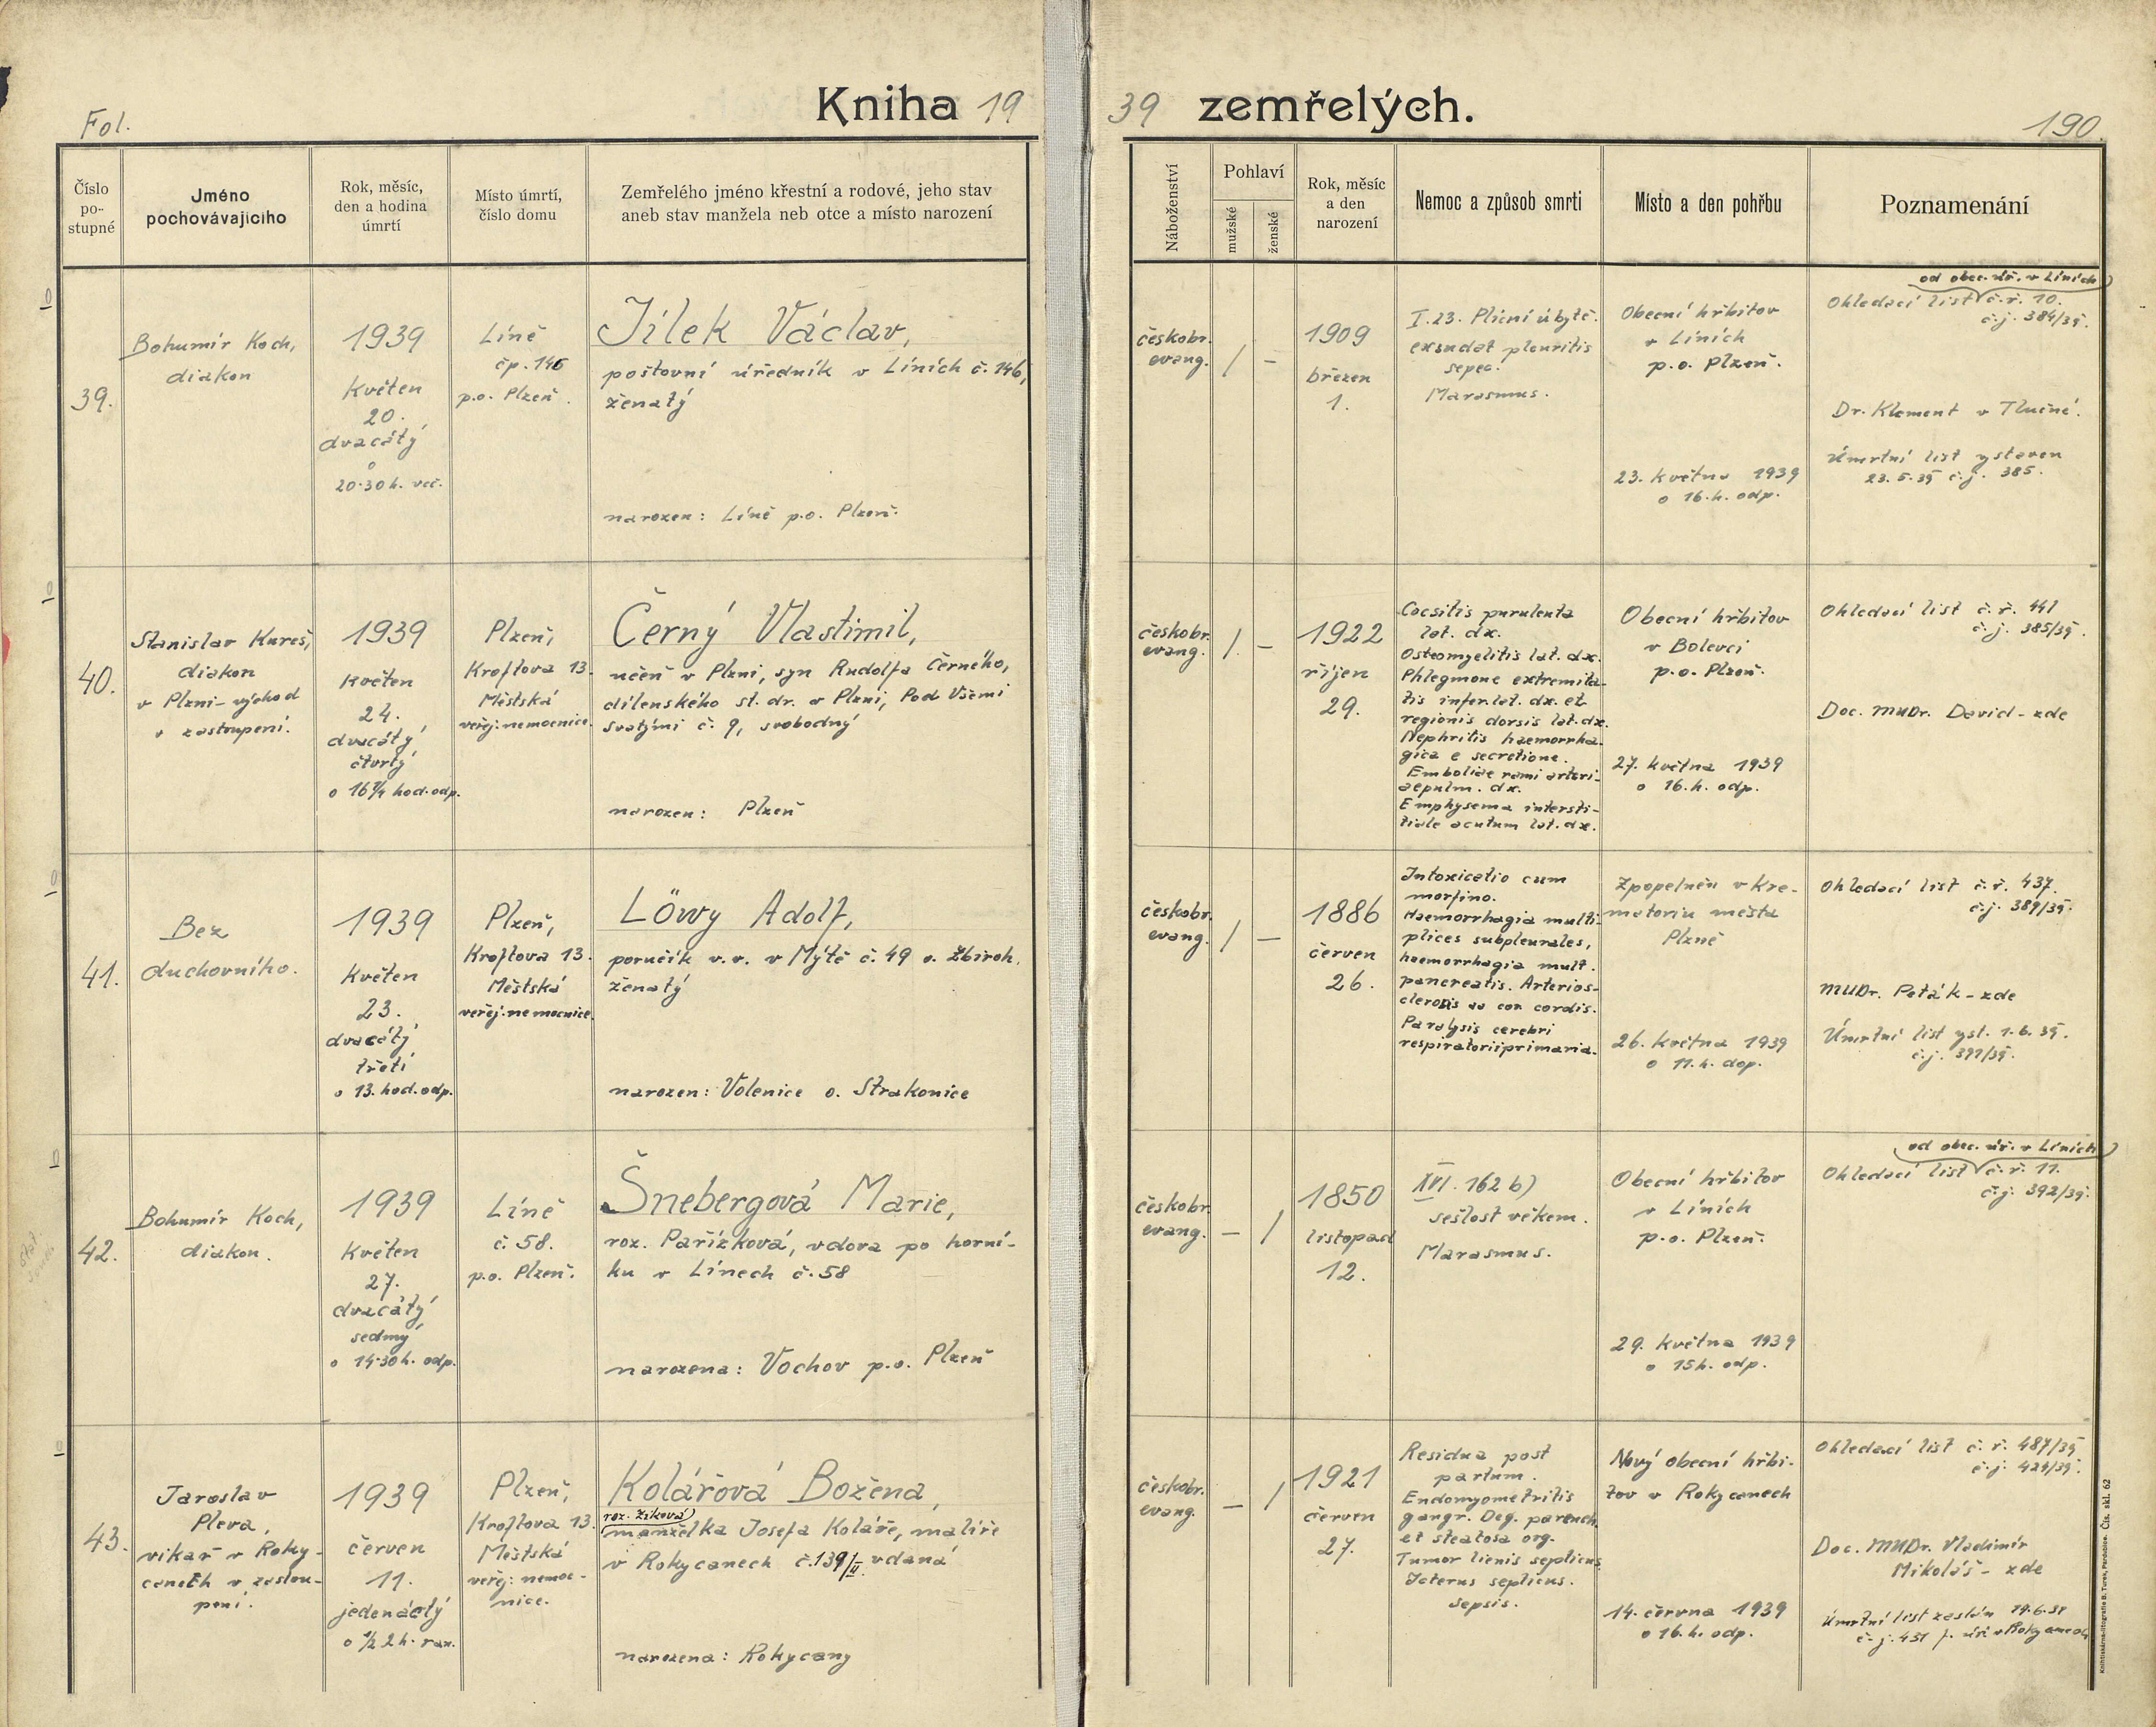 Fol.
Kniha 19
39 zemřelých.
190.
Číslo
po-
stupné
Jméno
pochovávajícího
Rok, měsíc,
den a hodina
úmrtí
Místo úmrtí,
číslo domu
Zemřelého jméno křestní a rodové, jeho stav
aneb stav manžela neb otce a místo narození
Náboženství
Pohlaví
mužské
ženské
Rok, měsíc
a den
narození
Nemoc a způsob smrti
Místo a den pohřbu
Poznamenání
39.
Bohumír Koch,
diakon
1939
Květen
20.
dvacátý
o
20·30 h. več.
Líně
čp. 146
p.o. Plzeň.
Jílek Václav,
poštovní úředník v Líních č. 146,
ženatý
narozen: Líně p.o. Plzeň.
českobr.
evang.
/
–
1909
březen
1.
I. 23. Plicní úbytě.
exsudat pleuritis
sepec.
Marasmus.
Obecní hřbitov
v Líních
p.o. Plzeň.
23. května 1939
o 16.h. odp.
od obec. úř. v Líních
Ohledací list č.ř. 10.
č.j. 384/39.
Dr. Klement v Tlučné.
Úmrtní list vystaven
23.5.39 č.j. 385.
40.
Stanislav Kureš,
diakon
v Plzni-východ
v zastoupení.
1939
Květen
24.
dvacátý
čtvrtý
o 16¾ hod. odp.
Plzeň,
Kroftova 13.
Městská
veřej. nemocnice.
Černý Vlastimil,
učeň v Plzni, syn Rudolfa Černého,
dílenského st. dr. v Plzni, Pod Všemi
svatými č. 9, svobodný
narozen: Plzeň
českobr.
evang.
/.
–
1922
říjen
29.
Cocsitis purulenta
lat. dx.
Osteomyelitis lat. dx.
Phlegmone extremita-
tis infer. lat. dx. et
regionis dorsis lat. dx.
Nephritis haemorrha-
gica e secretione.
Emboliae rami arteri-
aepulm. dx.
Emphysema intersti-
tiale acutum lat. dx.
Obecní hřbitov
v Bolevci
p.o. Plzeň.
27. května 1939
o 16.h. odp.
Ohledací list č.ř. 441
č.j. 385/39.
Doc. MUDr. David - zde
41.
Bez
duchovního.
1939
Květen
23.
dvacátý
třetí
o 13. hod. odp.
Plzeň,
Kroftova 13.
Městská
veřej. nemocnice.
Löwy Adolf,
poručík v.v. v Mýtě č. 49 o. Zbiroh,
ženatý
narozen: Volenice o. Strakonice
českobr.
evang.
/
–
1886
červen
26.
Intoxicatio cum
morfino.
Haemorrhagia multi-
plices subpleurales,
haemorrhagia mult.
pancreatis. Arterios-
clerosis aa cor cordis.
Paralysis cerebri
respiratorii primaria.
Zpopelněn v kre-
matoriu města
Plzně
26. května 1939
o 11.h. dop.
Ohledací list č.ř. 437.
č.j. 389/39.
MUDr. Peták - zde
Úmrtní list vyst. 1.6.39.
č.j. 391/39.
42.
Bohumír Koch,
diakon.
1939
Květen
27.
dvacátý
sedmý
o 14·30 h. odp.
Líně
č. 58.
p.o. Plzeň.
Šnebergová Marie,
roz. Pařízková, vdova po horní-
ku v Línech č. 58
narozena: Vochov p.o. Plzeň
českobr.
evang.
–
/
1850
listopad
12.
XVI. 162 b)
sešlost věkem.
Marasmus.
Obecní hřbitov
v Líních
p.o. Plzeň.
29. května 1939
o 15 h. odp.
od obec. úř. v Líních
Ohledací list č.ř. 11.
č.j. 392/39.
43.
Jaroslav
Pleva,
vikář v Roky-
canech v zastou-
pení.
1939
červen
11.
jedenáctý
o ½ 2 h. ran.
Plzeň,
Kroftova 13.
Městská
veřej. nemoc-
nice.
Kolářová Božena,
roz. Žiková
manželka Josefa Koláře, malíře
v Rokycanech č.139/II vdaná
narozena: Rokycany
českobr.
evang.
–
/
1921
červen
27.
Residua post
partum.
Endomyometritis
gangr. Deg. parench.
et steatosa org.
Tumor lienis septicus.
Icterus septicus.
Sepsis.
Nový obecní hřbi-
tov v Rokycanech
14. června 1939
o 16.h. odp.
Ohledací list č.ř. 487/39
č.j. 429/39.
Doc. MUDr. Vladimír
Mikoláš - zde
Úmrtní list zaslán 19.6.39
č.j. 431 f. úř. v Rokycanech
Knihtiskárna-litografie B. Turek, Pardubice. Čís. skl. 62